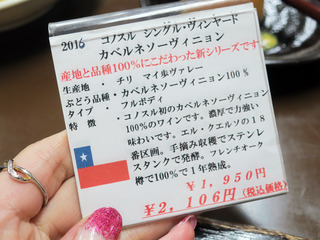 2016 コノスル シングル・ヴィンヤード
カベルネソーヴィニヨン
産地と品種100%にこだわった新シリーズです
生産地・チリ マイポヴァレー
ぶどう品種・カベルネソーヴィニヨン100%
タイプ・フルボディ
特徴・コノスル初のカベルネソーヴィニヨン
100%のワインです。濃厚で力強い
味わいです。エル・クエルソの18
番区画。手摘み収穫でステンレ
スタンクで発酵。フレンチオーク
樽で100%で1年熟成。
¥1,950円
¥2,106円(税込価格)